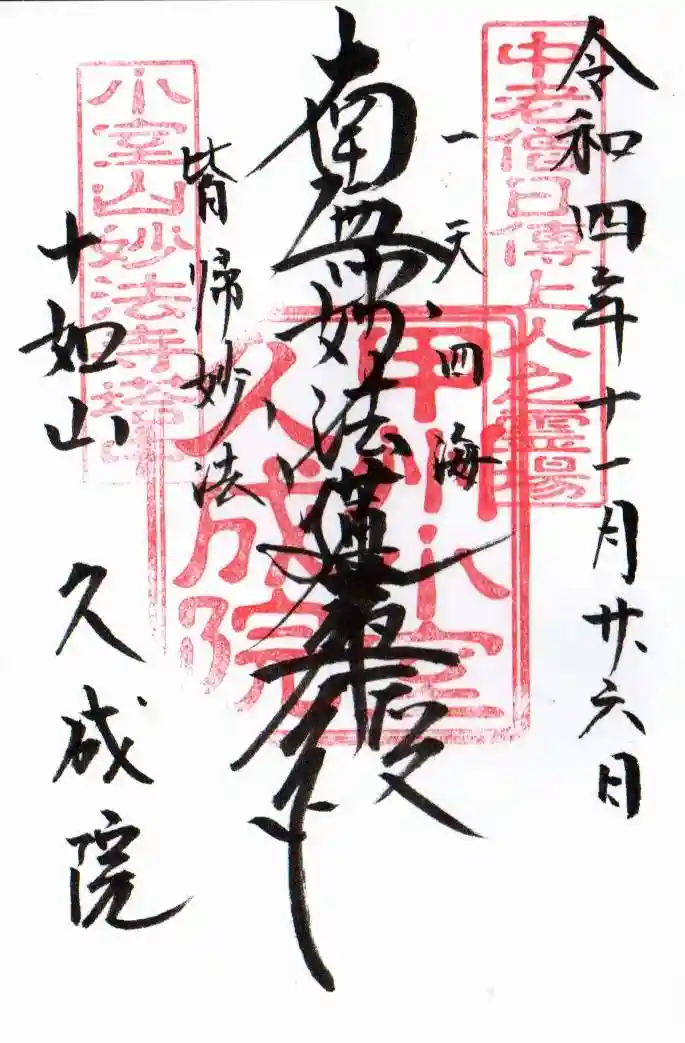 令和四年十一月廿六日
中老僧日傳上人之霊場
一天四海
南無妙法蓮華経
皆帰妙法
甲州小室
久成院
小室山妙法寺塔中
十如山 久成院